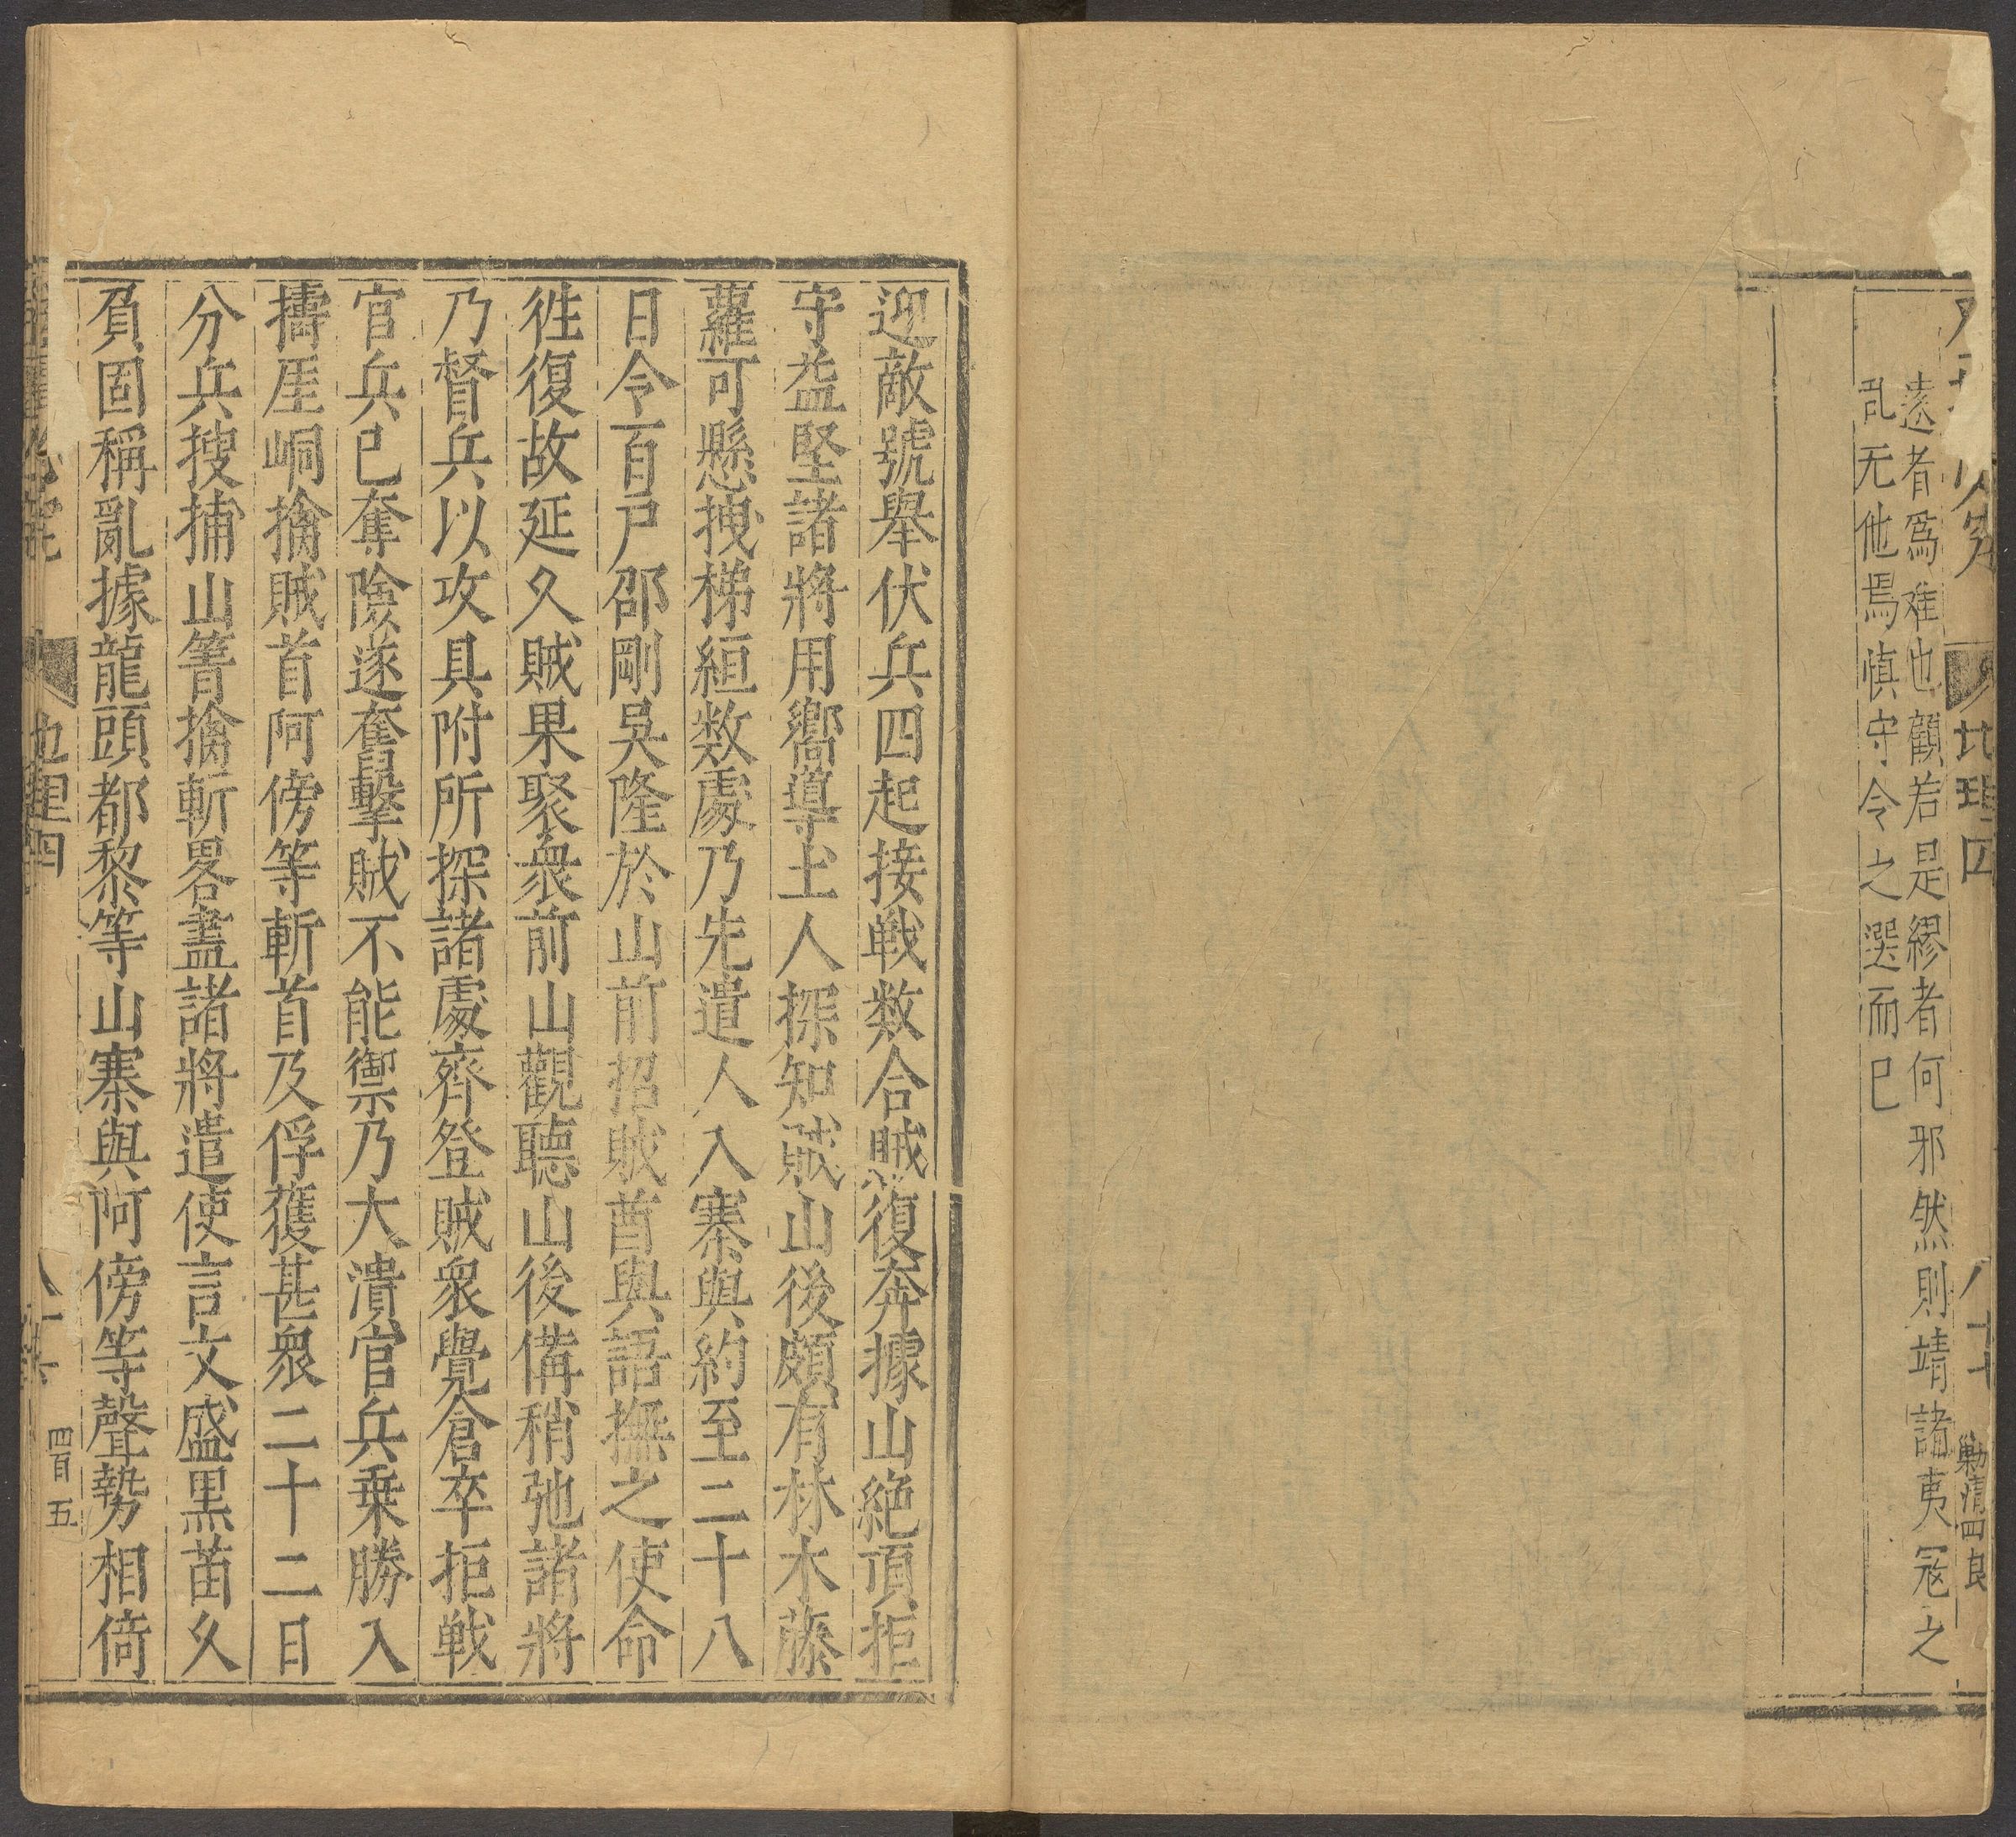 地理四
勦清四良
遠者爲难也顧若是繆者何邪然則靖諸夷冦之
乱无他焉慎守令之選而已
迎敵號舉伏兵四起接戰数合賊復奔據山絶頂拒
守益堅諸將用嚮導土人探知賊山後頗有林木藤
蘿可懸拽梯絙数處乃先遣人入寨與約至二十八
日令百户邵剛吳隆於山前招賊酋與語撫之使命
徃復故延久賊果聚衆前山觀聽山後備稍弛諸將
乃督兵以攻具附所探諸處齊登賊衆覺倉卒拒戰
官兵已奪險遂奮擊賊不能禦乃大潰官兵乗勝入
擣厓峒擒賊首阿傍等斬首及俘獲甚衆二十二日
分兵搜捕山箐擒斬畧盡諸將遣使言文盛黒苗久
負固稱亂據龍頭都黎等山寨與阿傍等聲勢相倚
地理四
四百五